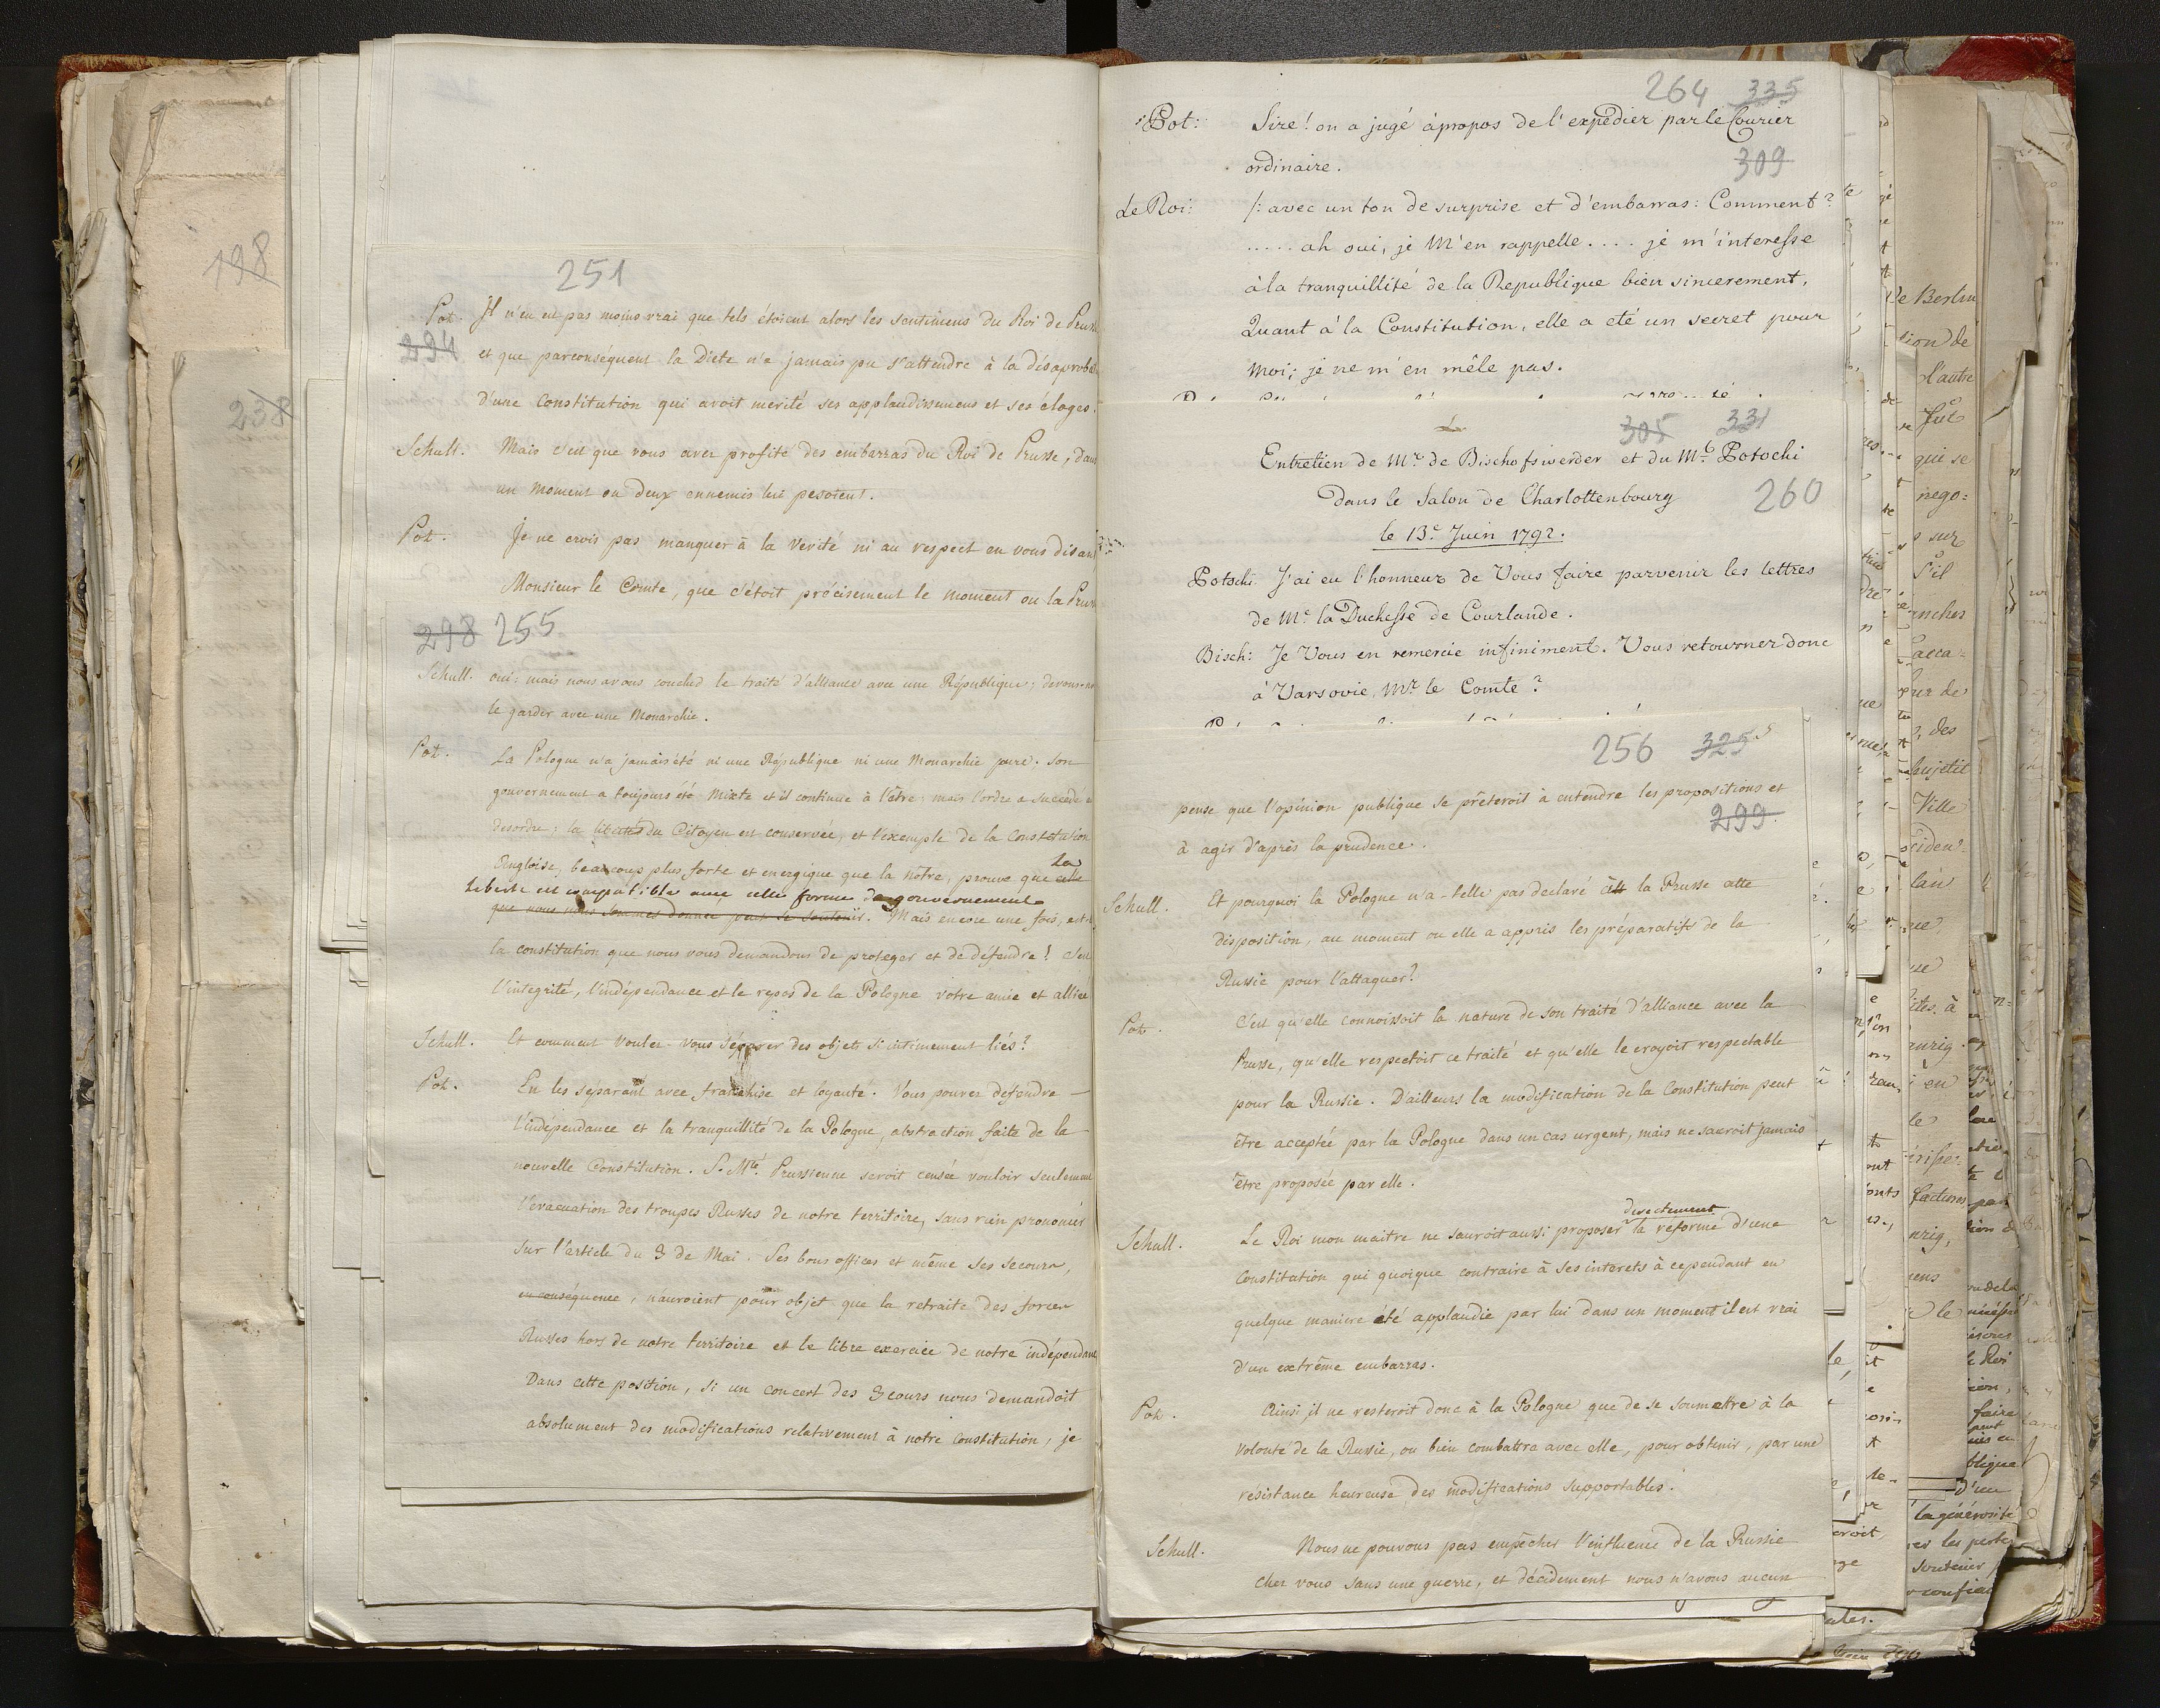 198
238
251
Pot. Il n'en est pas moins vrai que tels étoient alors les sentimens du Roi de
294
et que parconséquent la Diete n'a jamais pu s'attendre à la
d'une Constitution qui avoit mérité ses applaudissemens et ses éloges.
Schull. Mais c'est que vous avez profité des embarras du Roi de Prusse, dans
un moment ou deux ennemis lui pesoient.
Pot. Je ne crois pas manquer à la Verité ni au respect en vous disant
Monsieur le Comte, que c'étoit précisement le moment ou la
298 255
Schull. oui: mais nous avons conclud le traité d'alliance avec une République;
le garder avec une Monarchie.
Pot. La Pologne n'a jamais été ni une République ni une Monarchie pure. Son
gouvernement a toujours été Mixte et il continue à l'être: mais l'ordre a succedé
desordre: la liberté du Citoyen est conservée, et l'exemple de la Constitution
Angloise, beaucoup plus forte et energique que la nôtre, prouve que celle la
liberté est compatible avec cette forme de gouvernement
que nous nous sommes donnée peut se soutenir. Mais encore une fois,
la constitution que nous vous demandons de proteger et de défendre! C'est
l'integrité, l'indépendance et le repos de la Pologne votre amie et alliée
Schull. Et comment voulez-vous séparer des objets si intimement liés?
Pot. En les séparant avec franchise et loyauté. Vous pouvez défendre
l'indépendance et la tranquillité de la Pologne, abstraction faite de la
nouvelle Constitution. S. Mté. Prussienne seroit censée vouloir seulement
l'évacuation des troupes Russes de notre territoire, sans rien prononcer
sur l'article du 3 de Mai. Ses bons offices et même ses secours,
en conséquence, n'auroient pour objet que la retraite des forces
Russes hors de notre territoire et le libre exercice de notre
Dans cette position, si un concert des 3 cours nous demandoit
absolument des modifications relativement à notre Constitution, je
264 335
Pot: Sire! on a jugé àpropos de l'expédier par le Courier
ordinaire.
309
Le Roi: /: avec un ton de surprise et d'embarras: Comment?
..... ah oui, je M'en rappelle.... je m'interesse
à la tranquillité de la Republique bien sincerement.
Quant à la Constitution, elle a eté un secret pour
Moi; je ne m'en mêle pas.
305 331
Entretien de Mr. de Bischofswerder et du Potocki
Dans le Salon de Charlottenbourg
260
le 13e. Juin 1792.
Potocki. J'ai eu l'honneur de Vous faire parvenir les lettres
de Me. la Duchesse de Courlande.
Bisch: Je Vous en remercie infiniment. Vous retournez donc
à Varsovie, Mr. le Comte?
256 325
pense que l'opinion publique se prêteroit à entendre les propositions et
299
à agir d'après la prudence.
Schull. Et pourquoi la Pologne n'a-telle pas declaré à la Prusse cette
disposition, au moment ou elle a appris les préparatifs de la
Russie pour l'attaquer?
Pot. C'est qu'elle connoissoit la nature de son traité d'alliance avec la
Prusse, qu'elle respectoit ce traité et qu'elle le croyoit respectable
pour la Russie. D'ailleurs la modification de la Constitution peut
être acceptée par la Pologne dans un cas urgent, mais ne sauroit jamais
être proposée par elle.
directement
Schull. Le Roi mon maitre ne sauroit aussi proposer la réforme d'une
Constitution qui quoique contraire à ses interets à cependant en
quelque maniere été applaudie par lui dans un moment il est vrai
d'un extrême embarras.
Pot. Ainsi il ne resteroit donc à la Pologne que de se soumettre à la
volonté de la Russie, ou bien combattre avec elle, pour obtenir, par une
résistance heureuse des modifications supportables.
Schull. Nous ne pouvons pas empêcher l'influence de la Russie
chez vous sans une guerre, et décidement nous n'avons aucun
de Berlin
l'autre
fut
qui se
nego=
sur
s'il
des
Ville
factions
le Roi
faire
la générosité
soutenir